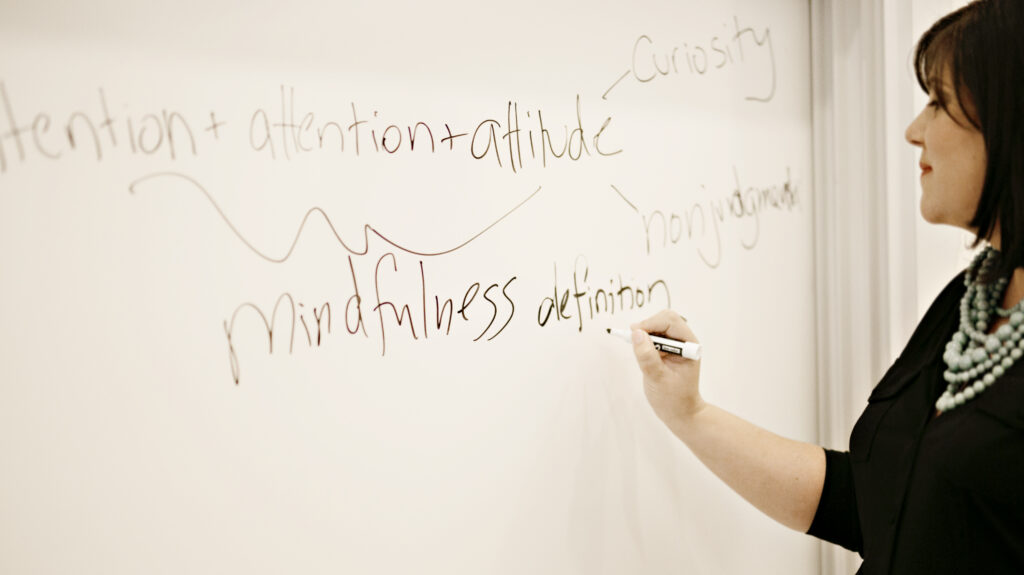 Curiosity
tention + attention + attitude
nonjudgment
mindfulness definition